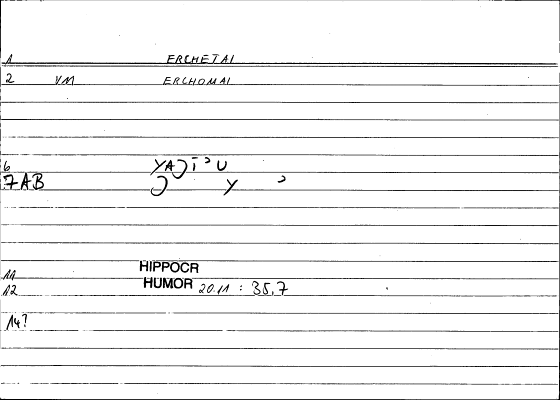 1 ERCHETAI
2 VM ERCHOMAI
6
7AB
11 HIPPOCR
12 HUMOR 20.11 : 35,7
14?